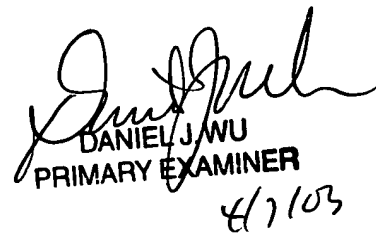 DANIEL J. WU
PRIMARY EXAMINER
4/7/03